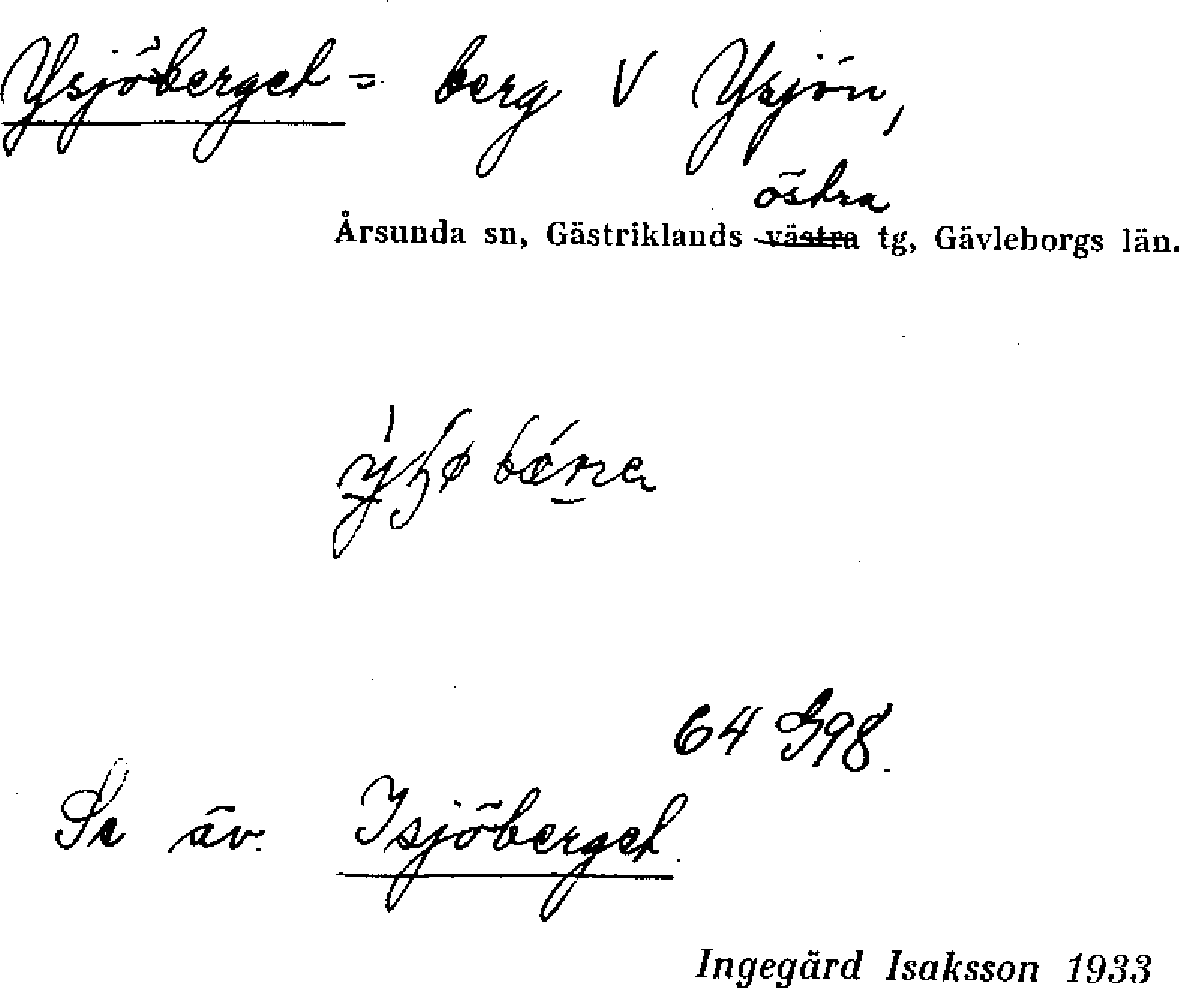 Ysjöberget = berg V Ysjön,
östra
Årsunda sn, Gästriklands västra tg, Gävleborgs län.
64 G98.
Se äv. Isjöberget.
Ingegärd Isaksson 1933